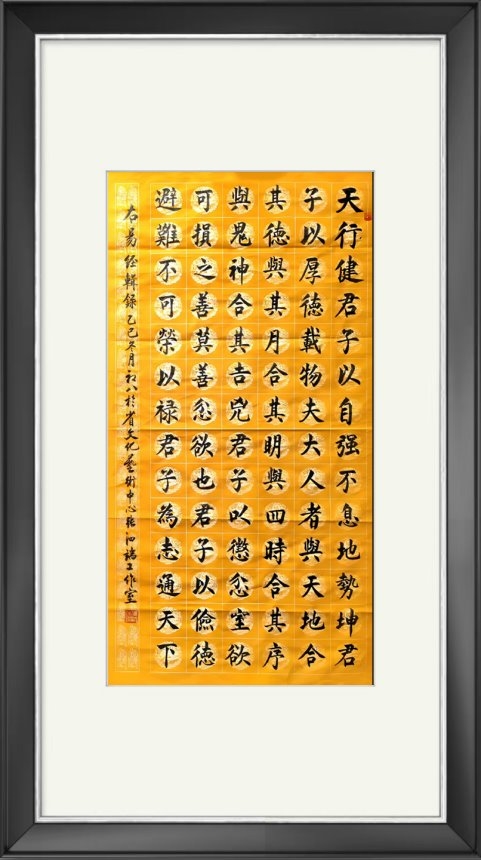 天行健君子以自强不息地勢坤君
子以厚德載物夫大人者與天地合
其德與其月合其明與四時合其序
與鬼神合其吉兇君子以懲忿室欲
可損之善莫善忿欲也君子以儉德
避難不可榮以禄君子為志通天下
右易經輯錄乙巳冬月初八於省文化藝術中心張泗端工作室